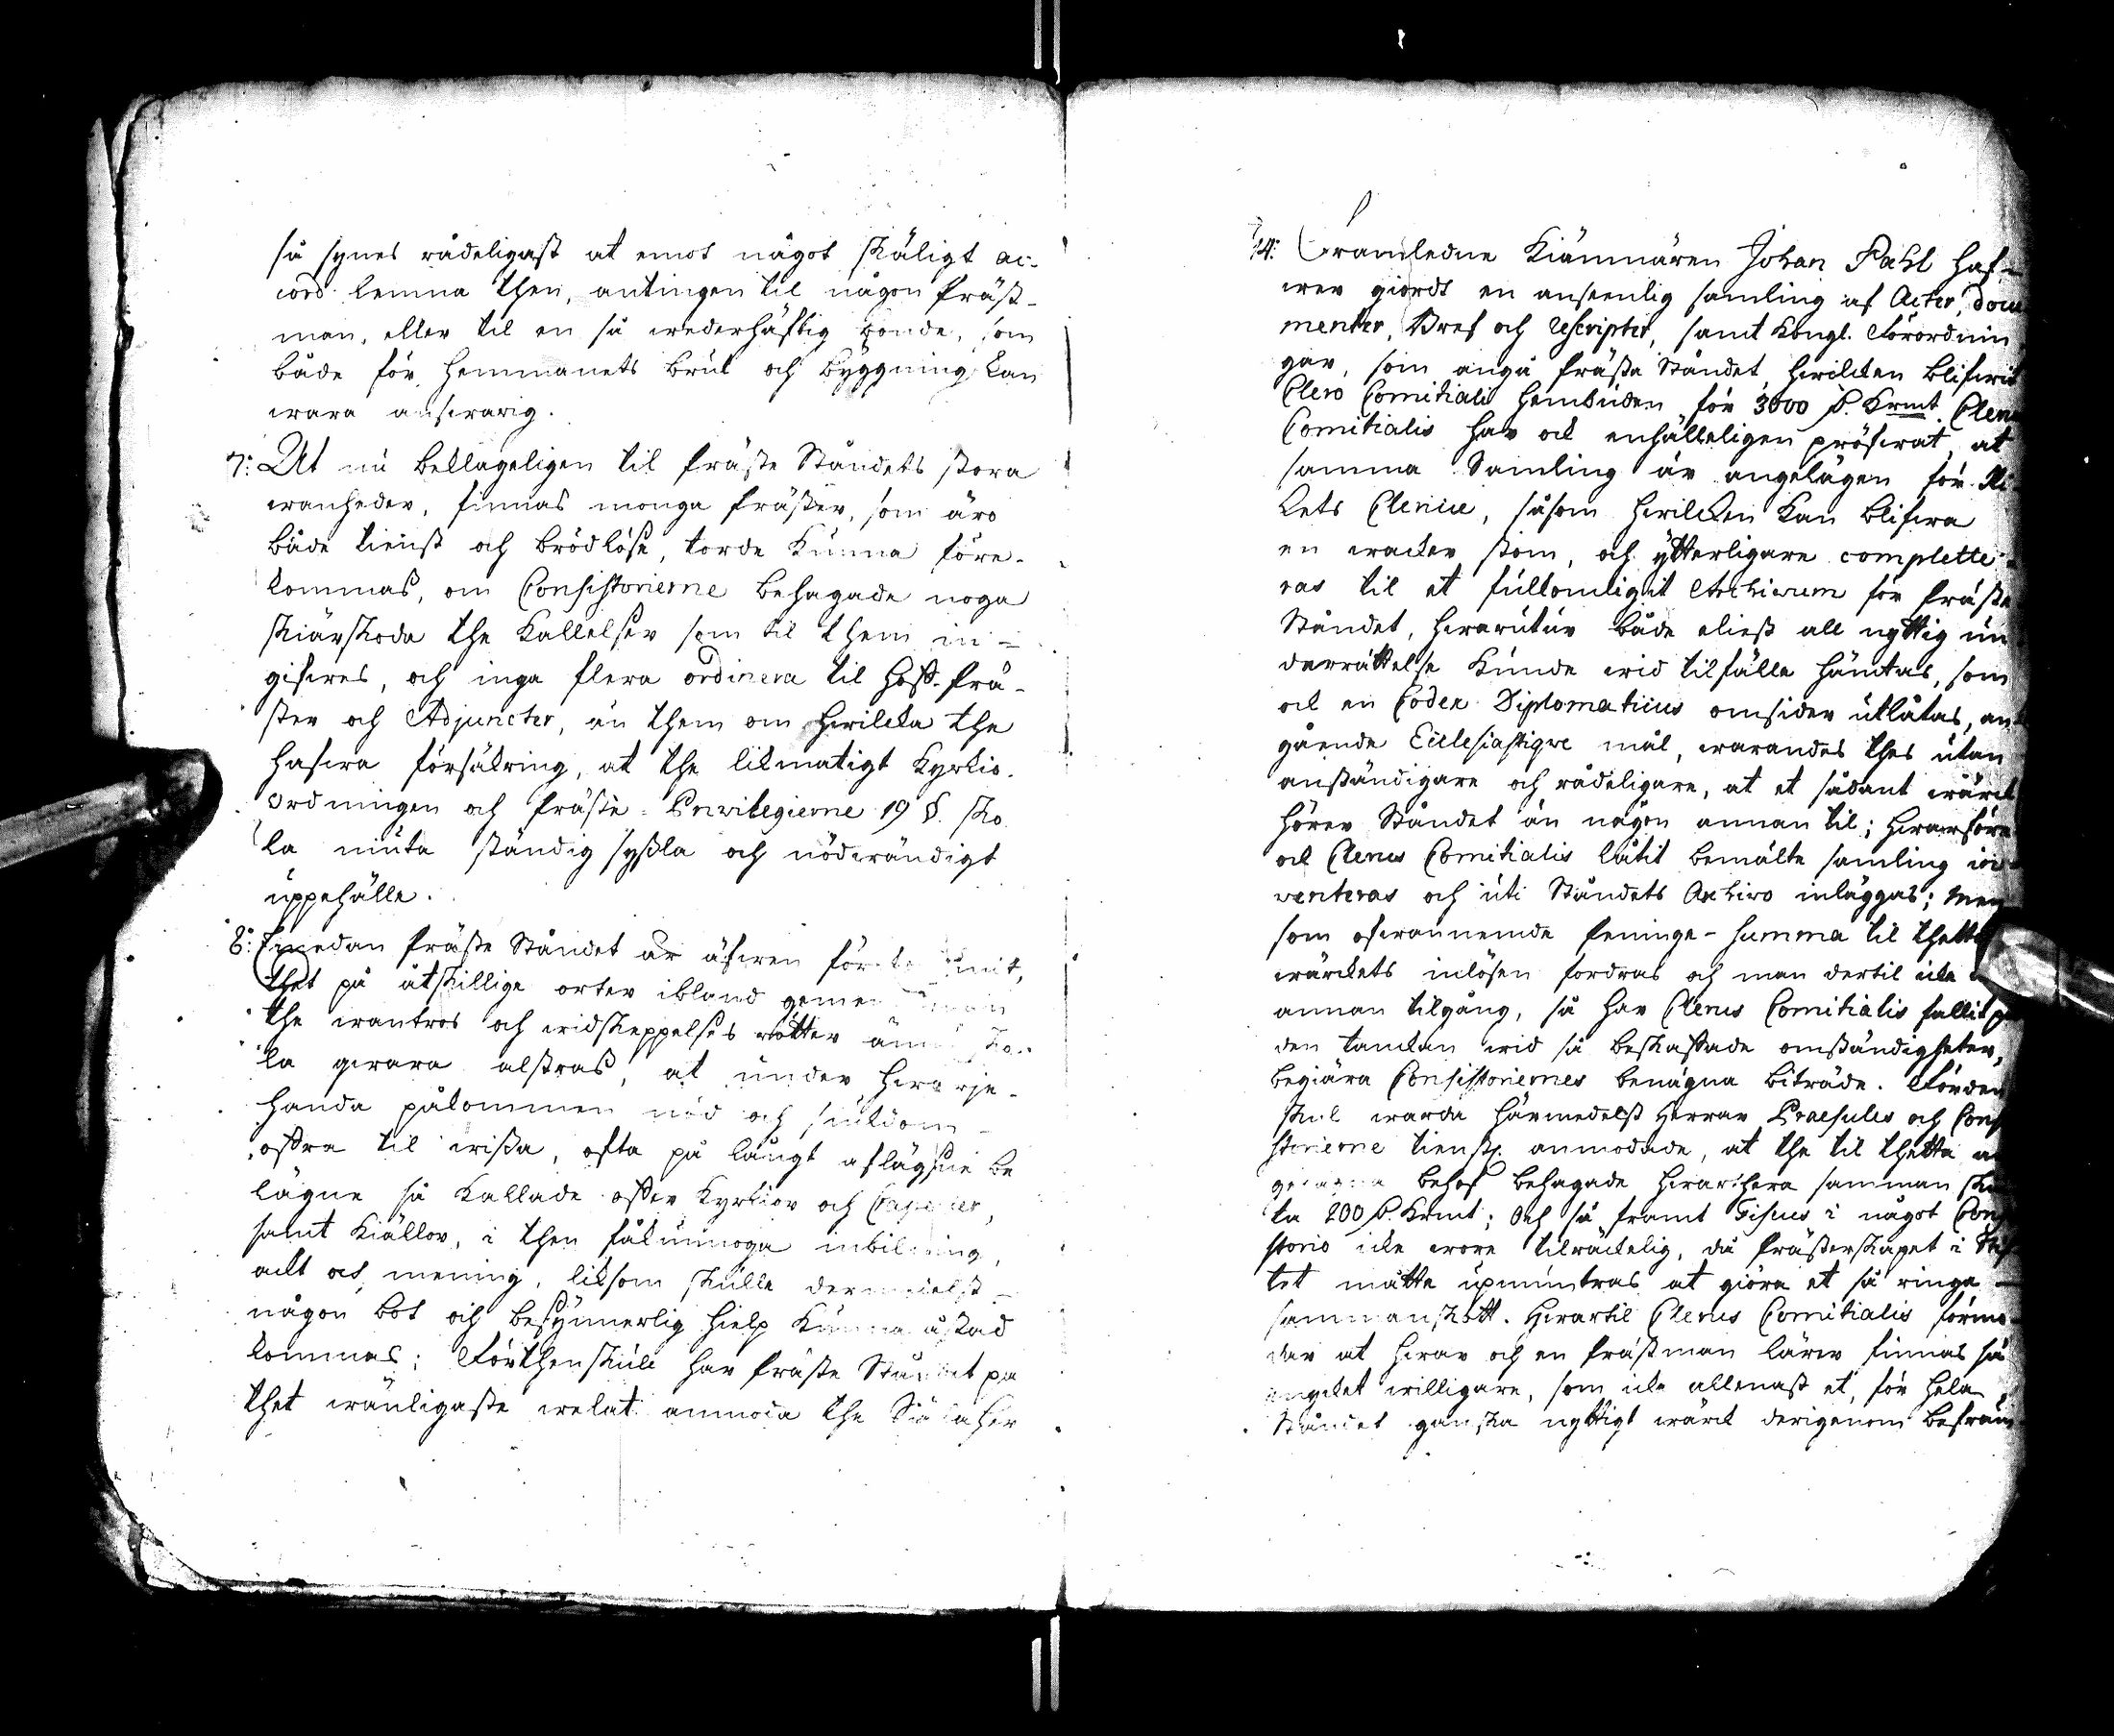 så synes rådeligast at emot något skäligt ac-
cord lemna then, antingen til någon präst-
man, eller til en så wederhäftig bonde, som
både för hemmanets bruk och byggning kan
wara answarig.
7: At nu beklageligen til Präste Ståndets stora
wanheder, finnas monga präster, som äro
både tienst och brödlöse, torde kunna före-
kommas, om Consistorierne behagade noga
skiärskoda the kallelser som til them in-
gifwes, och inga flera ordinera til Hofs-prä-
ster och Adjuncter, än them om hwilcka the
hafwa försäkring, at the likmätigt Kyrkio-
Ordningen och Präste-Privilegierne 19 §. sko-
la niuta ständig syssla och nödwändigt
uppehälle.
8: Emedan Präste Ståndet är äfwen
thet på åtskillige orter ibland
the wantros och widskeppelses rötter
la qwara alstras, at under hwarje-
handa påkommen nöd och siukdom
offra til wissa, ofta på långt aflägsne be
lägne så kallade offer Kyrkior och
samt Kiällor, i then fåkunnoga inbilning,
ackt och mening, liksom skulle dermedelst
någon bot och besynnerlig hielp kunna åstad
kommas; Förthenskull har Präste Ståndet på
thet wänligaste welat anmoda the
14: Framledne Kiämnären Johan Pahl haf-
wer giordt en ansenlig samling af Acter, docu
menter, Bref och rescripter, samt Kongl. Förordnin
gar, som angå Präste Ståndet, hwilcken blifwit
Clero Comitiali hembuden för 3000 D. Krmt. Clerus
Comitialis har ock enhälleligen pröfwat, at
samma Samling är angelägen för Ri-
kets Clericie, såsom hwilcken kan blifwa
en wacker stom, och ytterligare complette-
ras til et fullomligit Archivum för Präste
Ståndet, hwarutur både eliest all nyttig un
derrättelse kunde wid tilfälle hämtas, som
ock en Codex Diplomaticus omsider utlåtas, an
gående Ecclesiastique mål, warandes thes utan
anständigare och rådeligare, at et sådant wärck
hörer Ståndet än någon annan til; Hwarföre
ock Clerus Comitialis låtit bemälte samling in-
venteras och uti Ståndets Archivo inläggas; Men
som ofwannemde peninge-summa til thetta
wärckets inlösen fordras och man dertil icke
annan tilgång, så har Clerus Comitialis fallit på
den tancken wid så beskaffade omständigheter,
begiära Consistoriernes benägna biträde. Förden
skul warda härmedelst Herrar Praesules och Consi
storierne tienstl. anmodade, at the til thetta
behof behagade hwarthera samman skiu
ta 200 D. Krmt; Och så framt Fiscus i något Consi
storio icke wore tilräckelig, då Prästerskapet i Stif
tet måtte upmuntras at giöra et så ringa
sammanskott. Hwartil Clerus Comitialis förmo
dar at hwar och en prästman lärer finnas så
mycket willigare, som icke allenast et, för hela
Ståndet ganska nyttigt wärck derigenom befräm